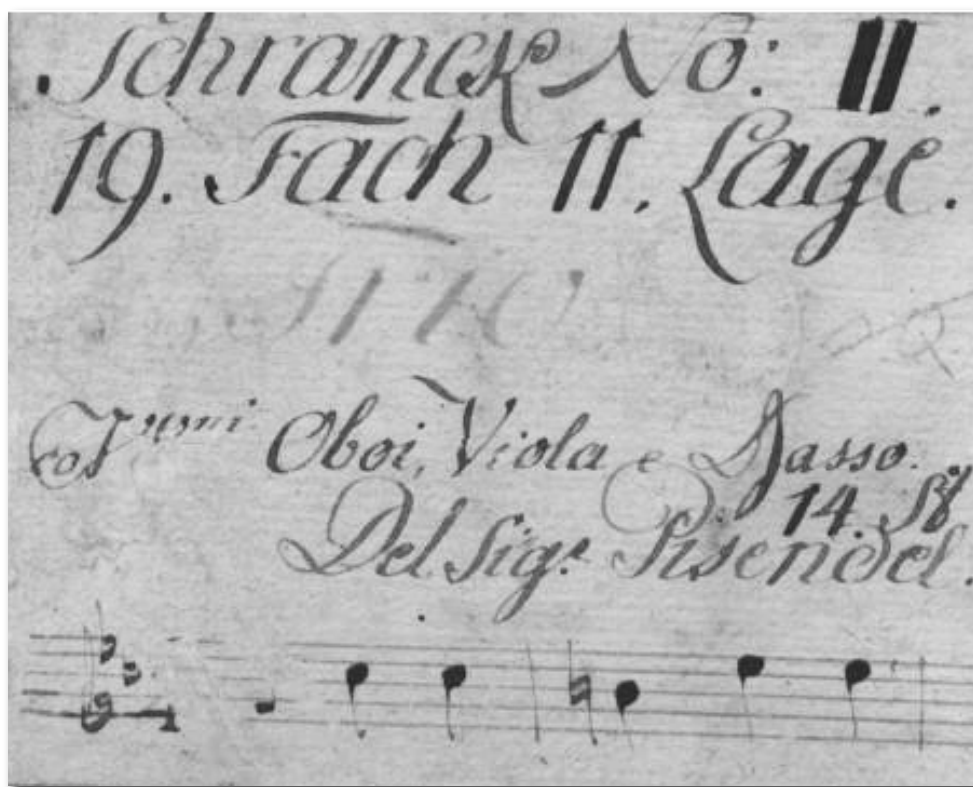 Schranck No: II.
19. Fach 11. Lage.
Oboi, Viola e Basso.
14. St
Del Sig.e Pisendel.